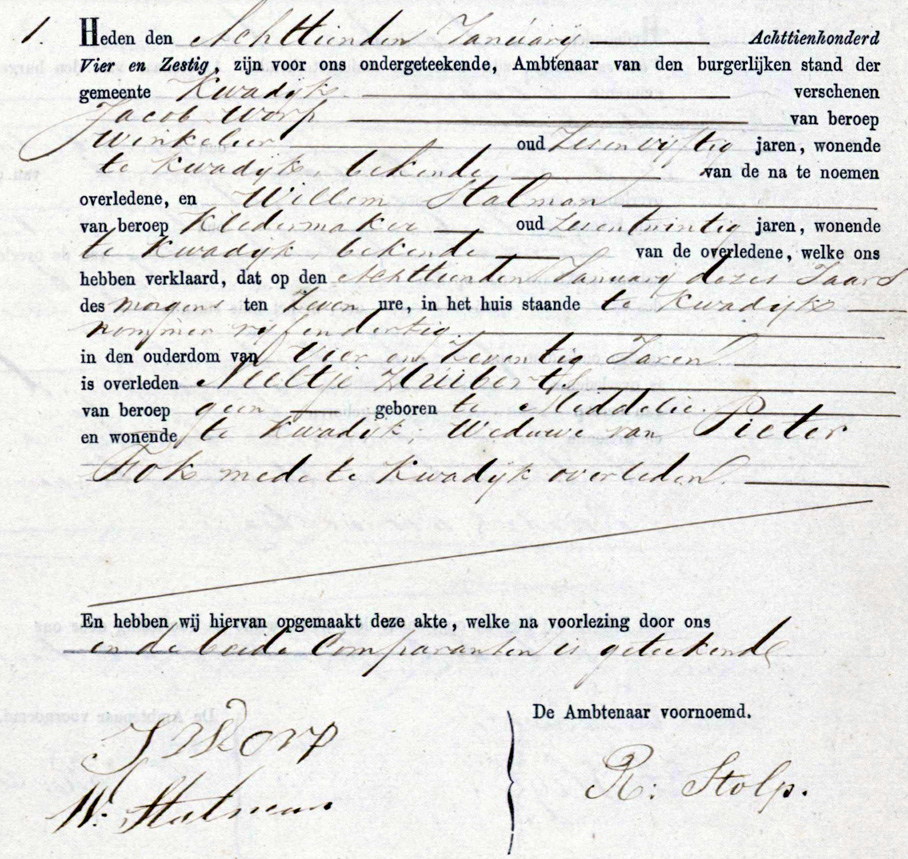 1. Heden den Achttienden Januarij Achttienhonderd
Vier en Zestig, zijn voor ons ondergeteekende, Ambtenaar van den burgerlijken stand der
gemeente Kwadijk verschenen
Jacob Worp van beroep
Winkelier oud Zevenvijftig jaren, wonende
te Kwadijk, bekende van de na te noemen
overledene, en Willem Stalman
van beroep Kledermaker oud zeventwintig jaren, wonende
te Kwadijk, bekende van de overledene, welke ons
hebben verklaard, dat op den Achttienden Januarij dezes Jaars
des morgens ten Zeven ure, in het huis staande te Kwadijk
nommer vijfendertig
in den ouderdom van Vier en Zeventig Jaren
is overleden Neeltje Huiberts
van beroep geen geboren te Middelie
en wonende te Kwadijk, Weduwe van Pieter
Fok mede te Kwadijk overleden.
En hebben wij hiervan opgemaakt deze akte, welke na voorlezing door ons
en de beide Comparanten is geteekend
De Ambtenaar voornoemd.
J Worp
R: Stolp.
W: Stalman